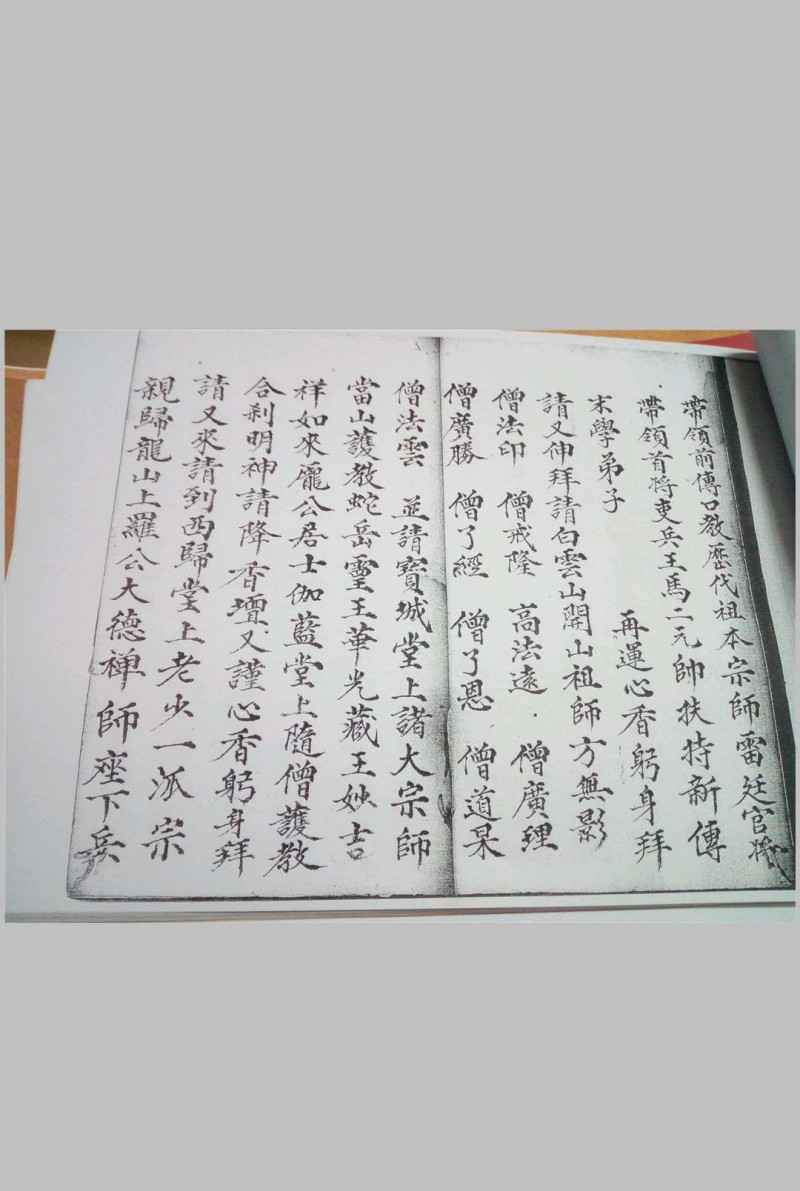 帶領前傳口教歷代祖本宗師雷廷官將
帶領首將吏兵王馬二元帥扶持新傳
末學弟子　再運心香躬身拜
請又伸拜請白雲山開山祖師方無影
僧法印　僧戒隆　高法遠　僧廣理
僧廣勝　僧了經　僧了恩　僧道杲
僧法雲　並請寶城堂上諸大宗師
當山護教蛇岳靈王華光藏王妙吉
祥如來龐公居士伽藍堂上隨僧護教
合刹明神請降香壇又謹心香躬身拜
請又來請到西歸堂上老少一派宗
親歸龍山上羅公大德禅師座下兵